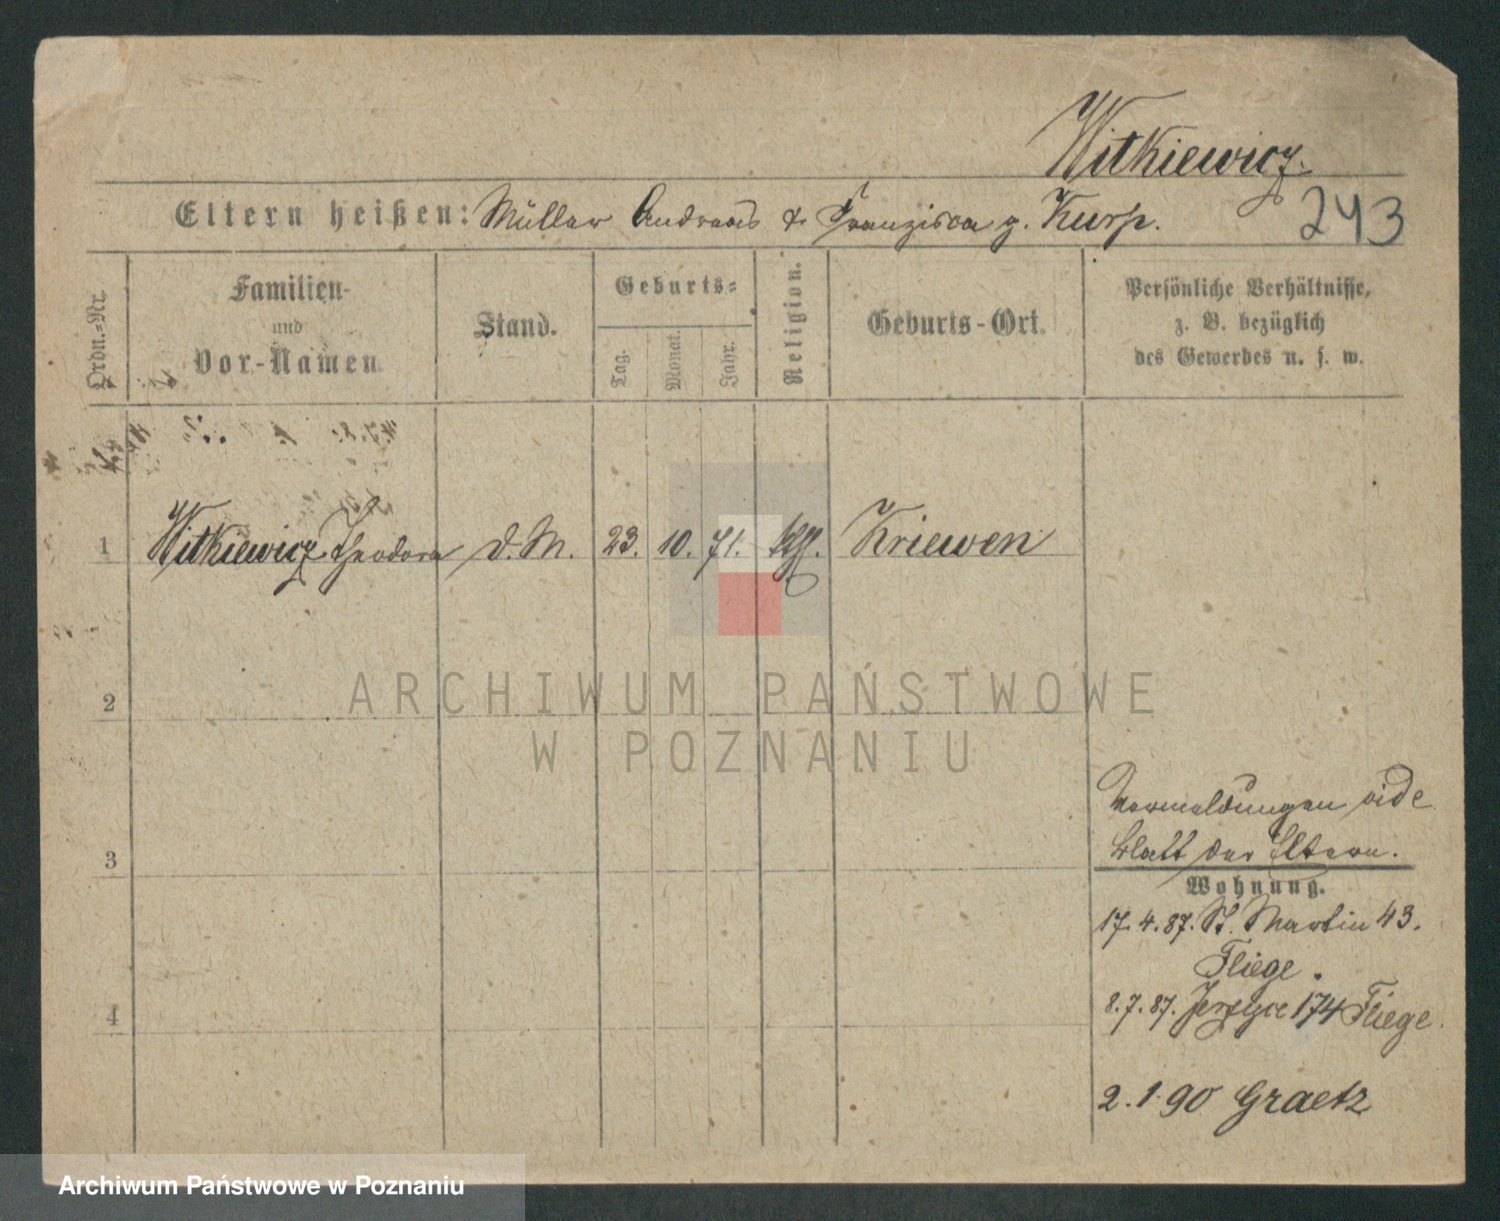 Witkiewicz.
243
Eltern heißen: Müller Andreas & Franziska g.
Ordn.-Nr.
Familien-
und
Vor-Namen
Stand.
Geburts-
Tag.
Monat.
Jahr.
Religion.
Geburts-Ort.
Persönliche Verhältnisse,
z. B. bezüglich
des Gewerbes u. s. w.
1 Witkiewicz Theodora d. M. 23. 10. 71. kth. Kriewen
2
3
4
Vermeldungen vide
Blatt der Eltern.
Wohnung.
17. 4. 87. St. Martin 43.
Fliege.
8. 7. 87. Jersyce 174 Fliege.
2. 1. 90 Graetz
ARCHIWUM PAŃSTWOWE
W POZNANIU
Archiwum Państwowe w Poznaniu